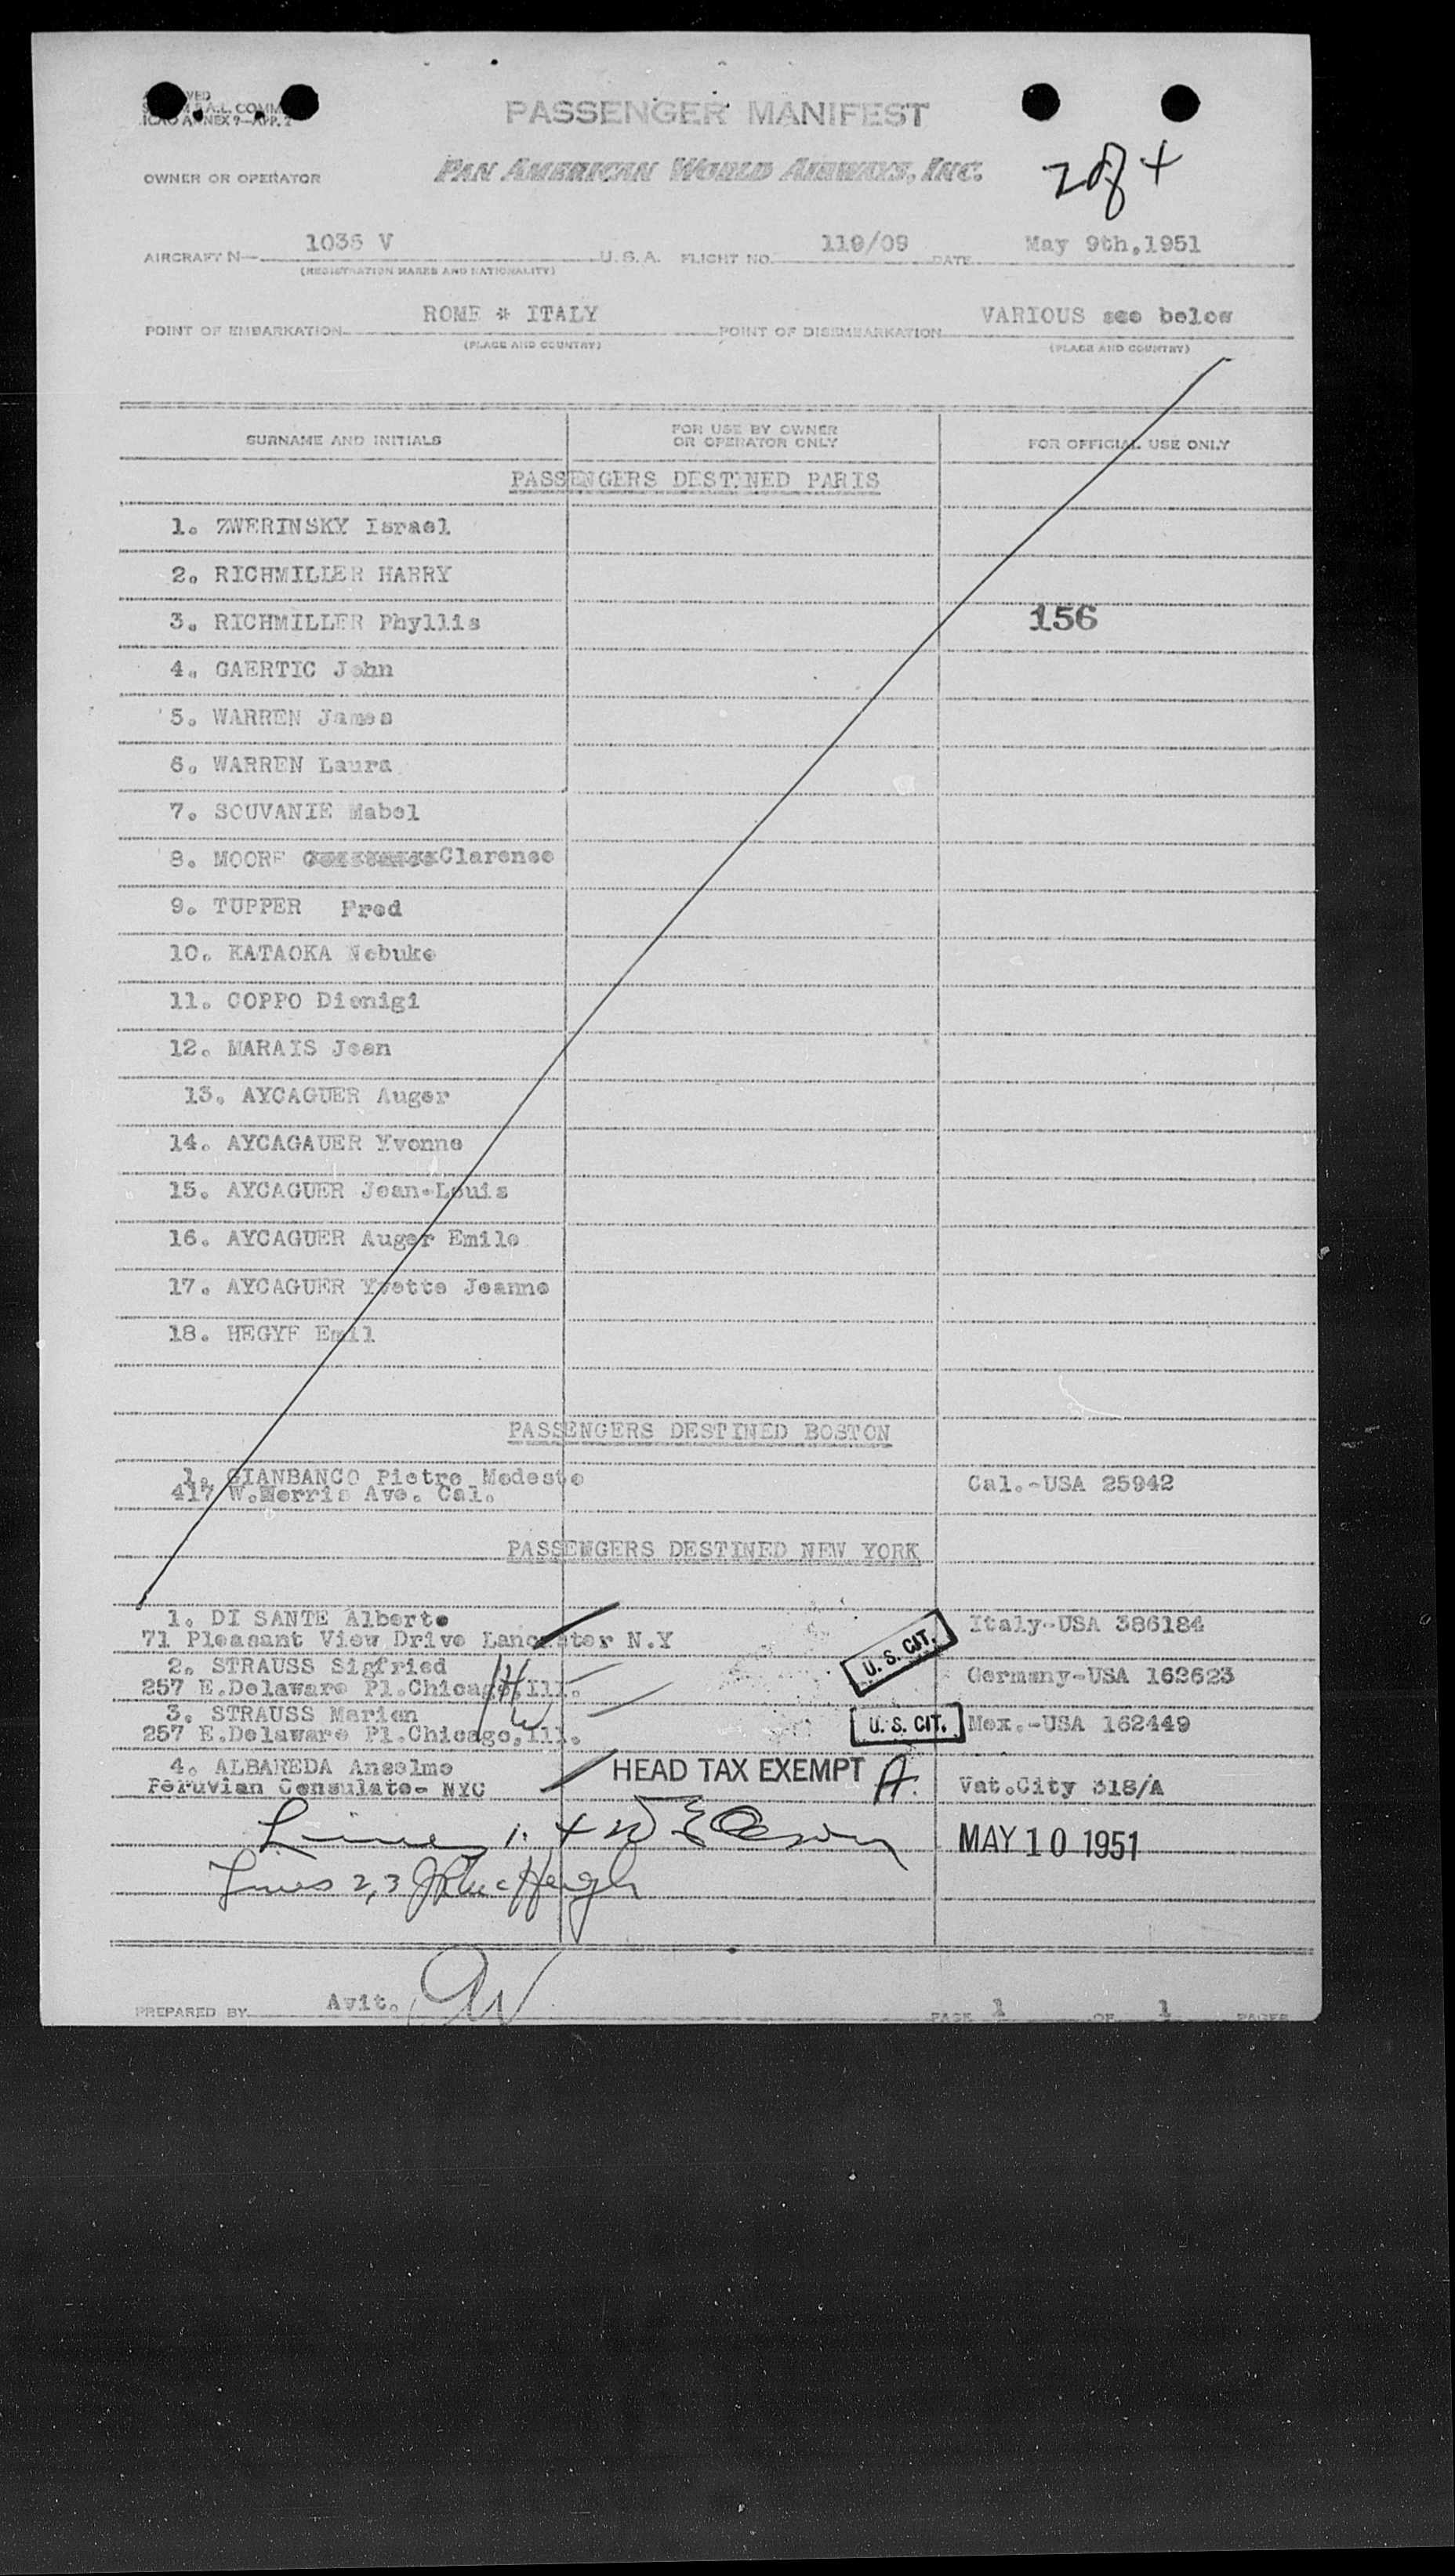 ICAO ANNEX 9—APP. 2
PASSENGER MANIFEST
OWNER OR OPERATOR PAN AMERICAN WORLD AIRWAYS, INC.
2 of 4
AIRCRAFT N— 1036 V U.S.A. FLIGHT NO. 119/09 DATE May 9th,1951
(REGISTRATION MARKS AND NATIONALITY)
POINT OF EMBARKATION ROME * ITALY POINT OF DISEMBARKATION VARIOUS see below
(PLACE AND COUNTRY) (PLACE AND COUNTRY)
SURNAME AND INITIALS FOR USE BY OWNER OR OPERATOR ONLY FOR OFFICIAL USE ONLY
PASSENGERS DESTINED PARIS
1. ZWERINSKY Israel
2. RICHMILLER HARRY
3. RICHMILLER Phyllis 156
4. GAERTIC John
5. WARREN James
6. WARREN Laura
7. SOUVANIE Mabel
8. MOORE Clarence
9. TUPPER Fred
10. KATAOKA Nobuko
11. COPPO Dionigi
12. MARAIS Jean
13. AYCAGUER Auger
14. AYCAGAUER Yvonne
15. AYCAGUER Jean-Louis
16. AYCAGUER Auger Emile
17. AYCAGUER Yvette Jeanne
18. HEGYF Emil
PASSENGERS DESTINED BOSTON
1. GIANBANCO Pietro Modesto
417 W.Norris Ave. Cal. Cal.-USA 25942
PASSENGERS DESTINED NEW YORK
1. DI SANTE Alberto Italy-USA 386184
71 Pleasant View Drive Lancaster N.Y U. S. CIT.
2. STRAUSS Sigfried Germany-USA 162623
257 E.Delaware Pl.Chicago,Ill.
3. STRAUSS Marion U. S. CIT. Mex.-USA 162449
257 E.Delaware Pl.Chicago,Ill.
4. ALBAREDA Anselmo HEAD TAX EXEMPT A. Vat.City 318/A
Peruvian Consulate- NYC
Lines 1. 4 MAY 10 1951
Lines 2,3
PREPARED BY Avit. PAGE 1 OF 1 PAGES